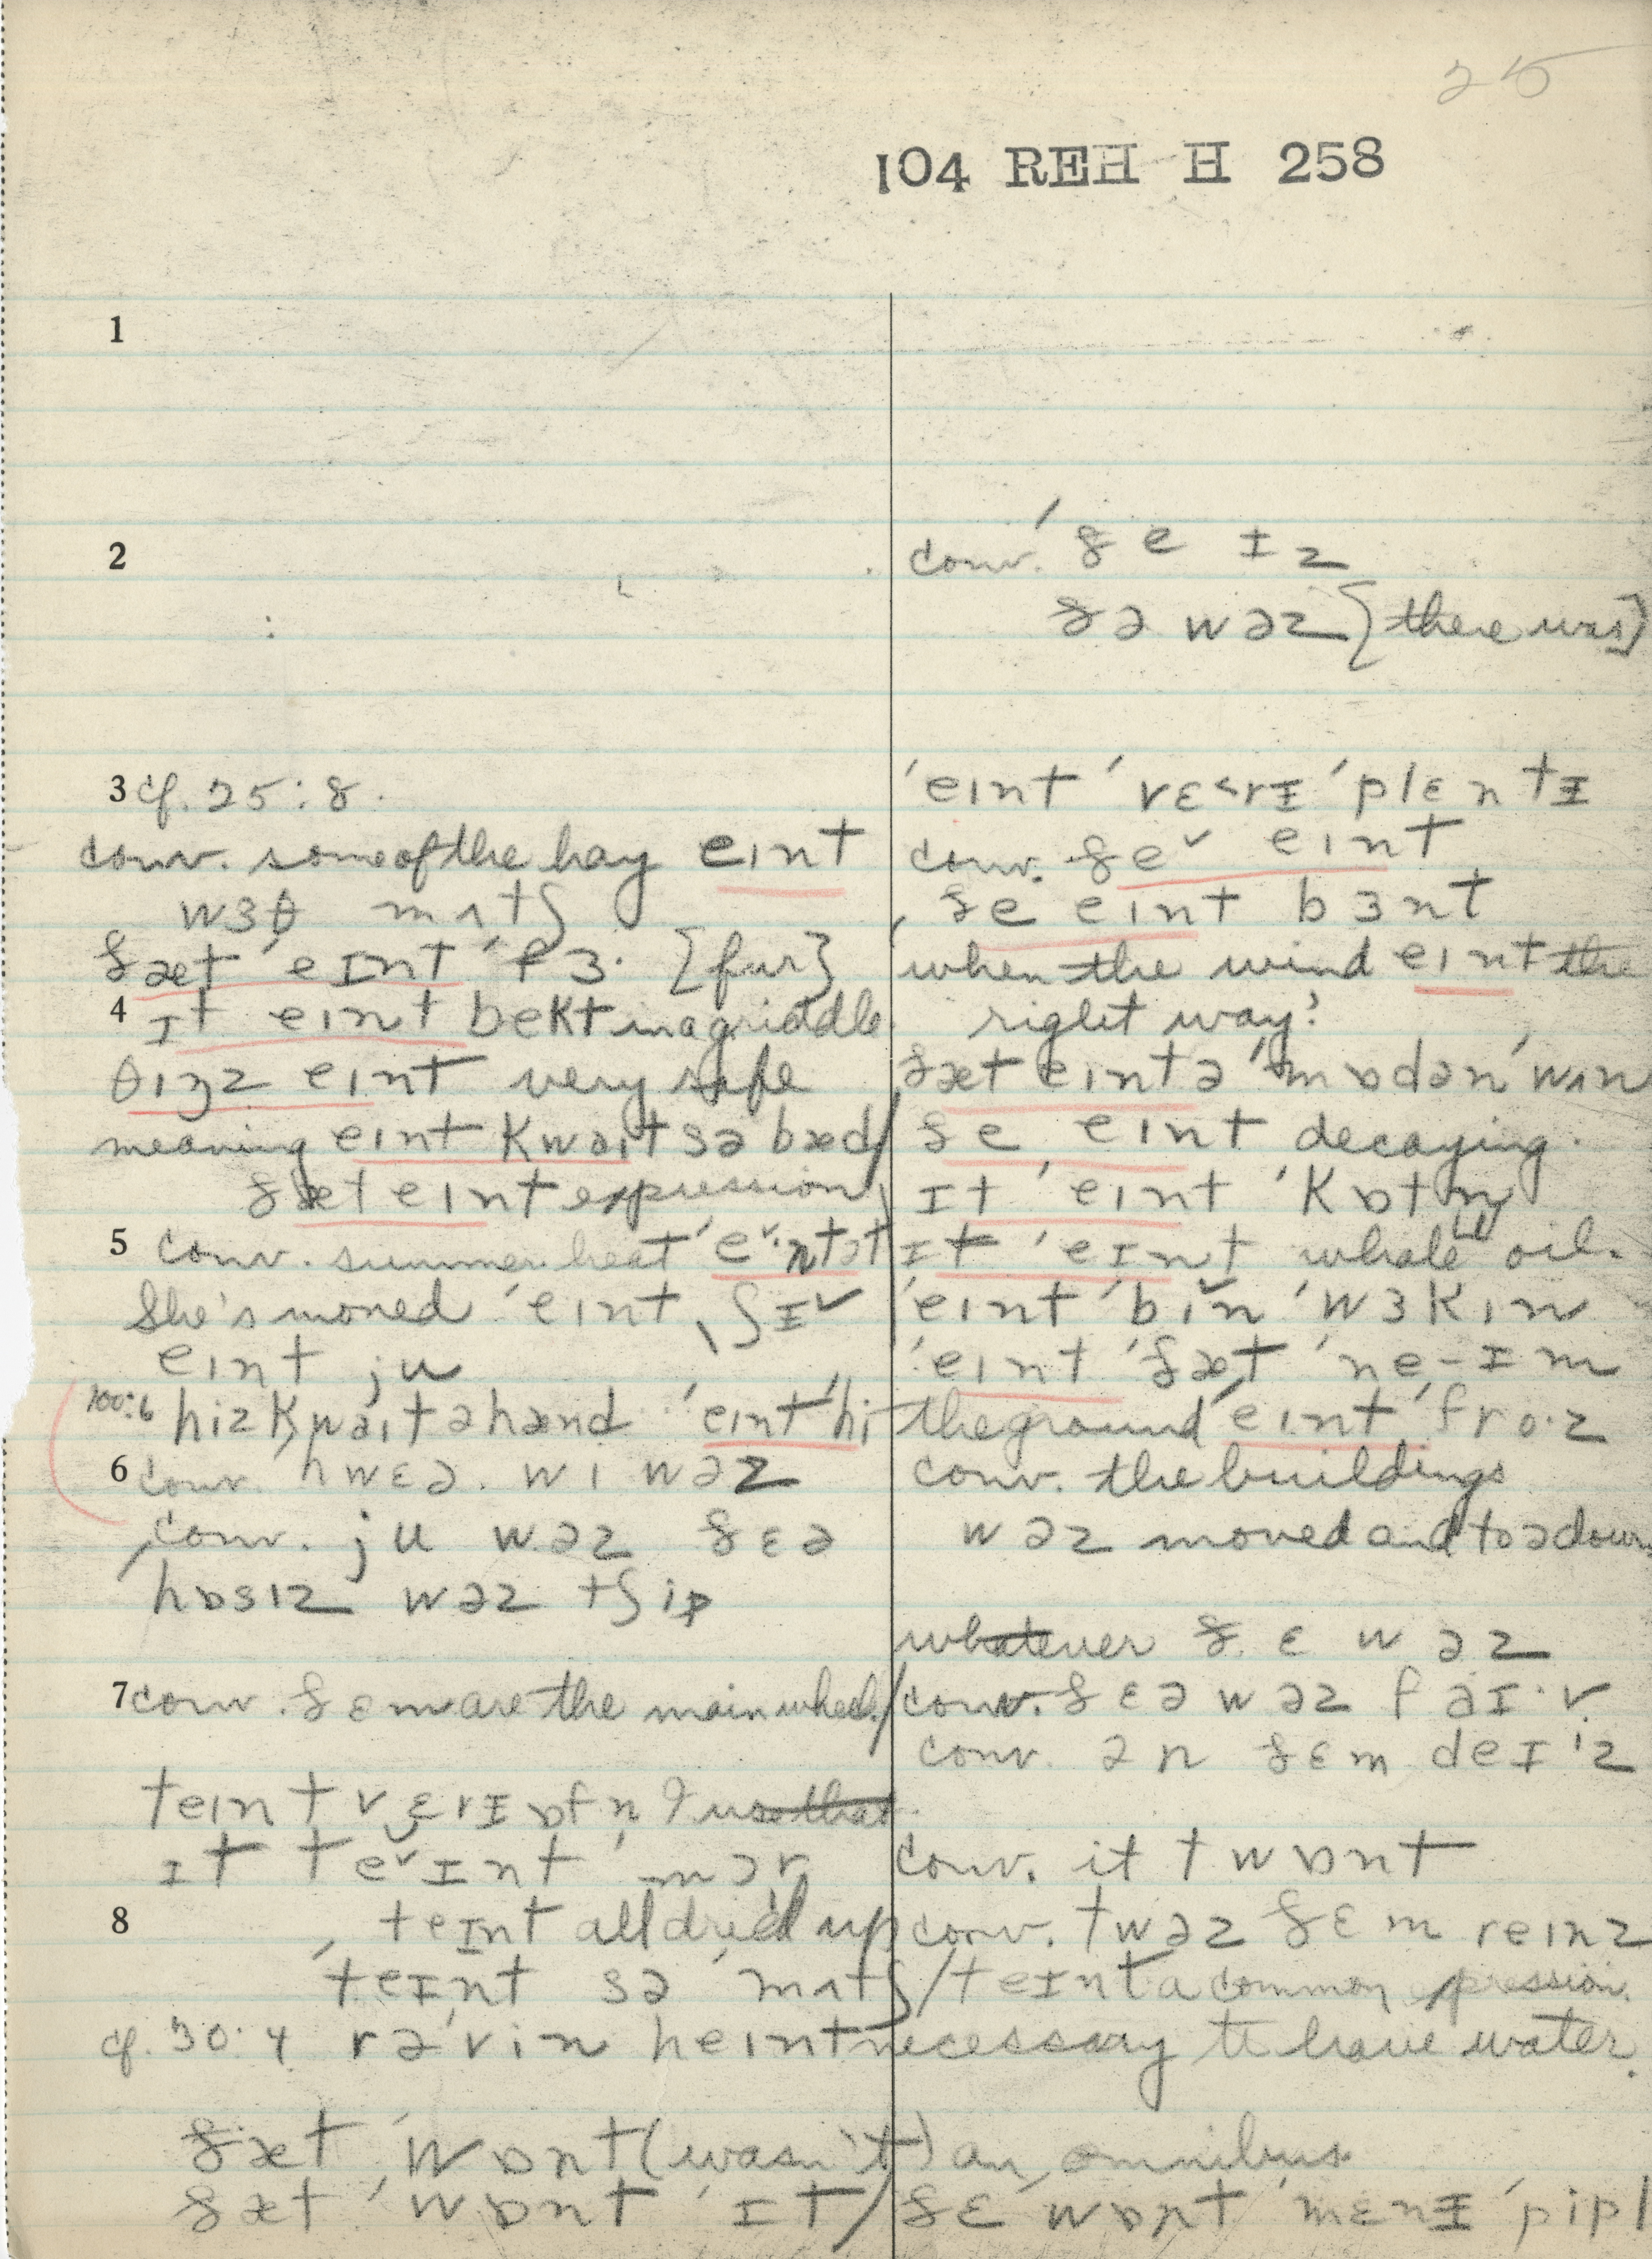 25
104 REH H 258
1
2
conv. ðe ɪz
ðə wəz {there was}
3 cf. 25:8.
conv. some of the hay eɪnt
wɜθ mʌtʃ
ðæt ˈeɪnt ˈfɜ· {fur}
4 ɪt eɪnt bekt in a griddle
θɪŋz eɪnt very safe
meaning eɪnt kwaɪt sə bæd/
ðæt eɪnt expression
5 conv. summer heat ˈe˅·ɪntət
She's moned ˈeɪnt ʃɪ˅
eɪnt ju
100:6 hiz kwaɪt ə hænd ˈeɪnt ˈhi
6 conv. hwɛə. wɪ wəz
conv. ju wəz ðɛə
ˈhɒsɪz wəz tʃip
7 conv. ðɛm are the main wheel/
teɪnt vɛrɪ ɒfn̩ I use that
ɪt te˅ɪnt mər
8 teɪnt all dried up
ˈteɪnt sə ˈmʌtʃ/
cf. 30:4 rəˈvin heɪnt necessary to have water.
ðæt ˈwɒnt (wasn't) an omnibus
ðæt ˈwɒnt ˈɪt/
ˈeɪnt ˈvɛ˂rɪ ˈplɛntɪ
conv. ðe˅ eɪnt
ðe eɪnt bɜnt
when the wind eɪnt the
right way?
ðæt eɪnt ə ˈmɒdən ˈwʌn
ðe eɪnt decaying.
ɪt ˈeɪnt ˈkɒtn̩
ɪt ˈeɪnt whale oil.
ˈeɪnt ˈbɪ˅n ˈwɜkɪn
ˈeɪnt ˈðæt ˈne-ɪm
the ground ˈeɪnt ˈfro·z
conv. the buildings
wəz moved and toə down
whatever ðɛ wəz
conv. ðɛə wəz faɪ·v
conv. ən ðɛm deɪ·z
conv. it twɒnt
conv. twəz ðɛm reɪnz
teɪnt a common expression.
ðɛ ˈwɒnt ˈmɛnɪ ˈpipl